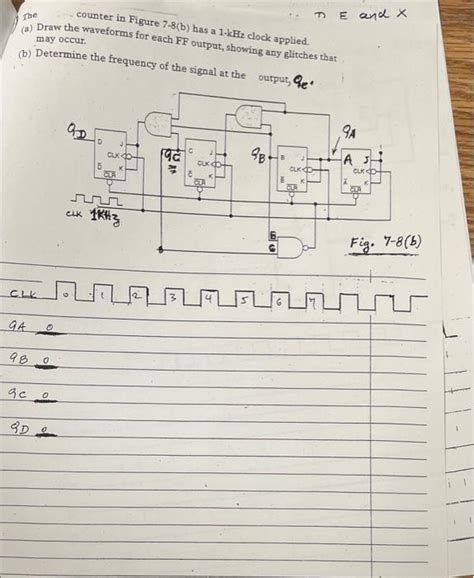 n E and X
The counter in Figure 7-8(b) has a 1-kHz clock applied.
(a) Draw the waveforms for each FF output, showing any glitches that
may occur.
(b) Determine the frequency of the signal at the output, qc.
qD
qC
qB
qA
D J
CLK
D K
CLR
C J
CLK
C K
CLR
B J
CLK
B K
CLR
A J
CLK
A K
CLR
CLK 1KHz
B
C
Fig. 7-8(b)
CLK 0 1 2 3 4 5 6 7
qA 0
qB 0
qC 0
qD 0